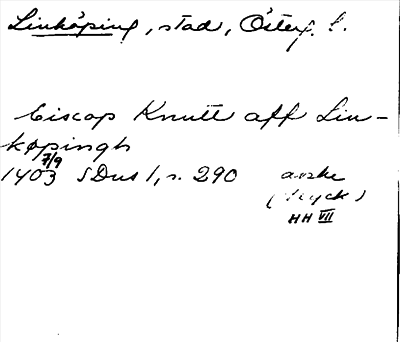 Linköping, stad, Österg. l.
biscop Knutt aff Lin-
køpingh
1403 7/9 SDns 1, s. 290 avskr
(tryck)
HH VII